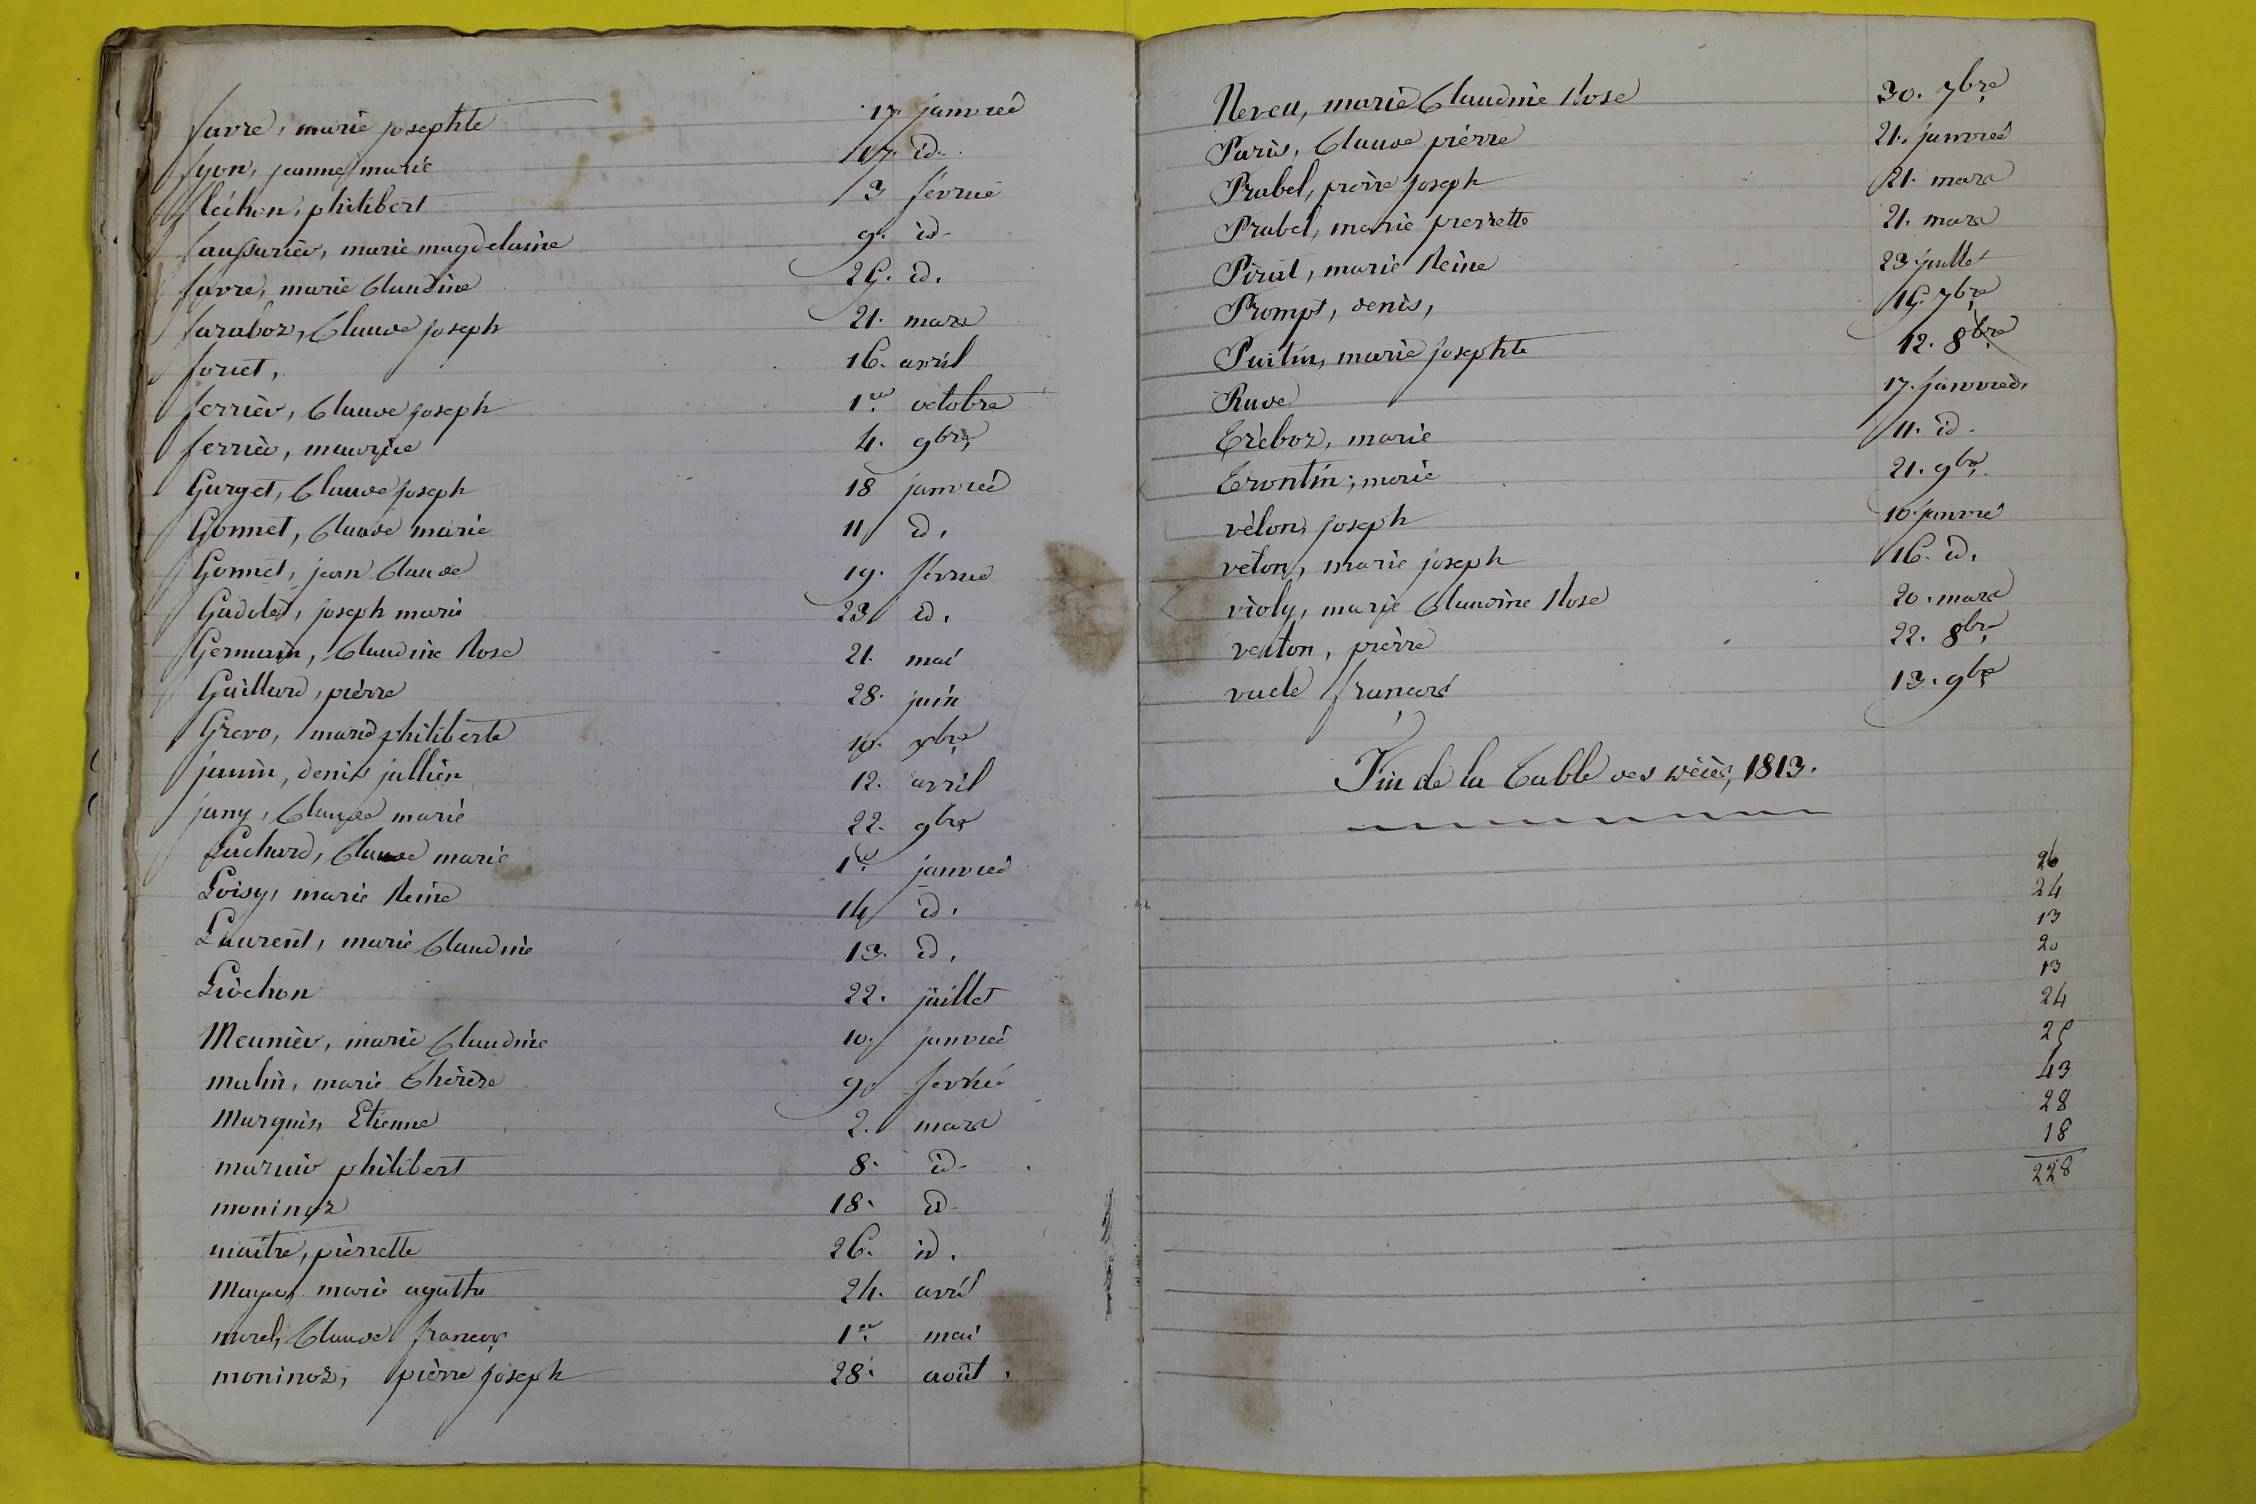 favre, marie josephte 17. janvier
fyon, jeanne marie 17. id.
fléchon, philibert 3 février
faussurier, marie magdelaine 9. id.
favre, marie Claudine 25. id.
faraboz, Claude joseph 21. mars
foriet, 16. avril
ferrier, Claude joseph 1er octobre
ferrier, maurice 4. 9bre
Gurget, Claude joseph 18 janvier
Gonnet, Claude marie 11 id.
Gonnet, jean Claude 19. février
Gadolet, joseph marie 23 id.
Germain, Claudine Rose 21. mai
Guillard, pierre 28. juin
Grevo, marie philiberte 10. xbre
janin, denis jullien 12. avril
jany, Claude marie 22. 9bre
Luchard, Claude marie 1er janvier
Loisy, marie Reine 14 id.
Laurent, marie Claudine 13. id.
Liochon 22. juillet
Meunier, marie Claudine 10. janvier
malin, marie Thérèse 9. février
Marquis, Etienne 2. mars
philibert 8. id.
moninoz 18. id.
maitre, pierrette 26. id.
Mayer marie agathe 24. avril
morel, Claude françois 1er mai
moninoz, pierre joseph 28. août.
Neveu, marie Claudine Rose 30. 7bre
Paris, Claude pierre 21. janvier
Prabel, pierre joseph 21. mars
Prabel, marie pierrette 21. mars
Pirat, marie Reine 23 juillet
Prompt, denis, 15. 7bre
Puitin, marie josephte 12. 8bre
Rude 17. janvier
Tréboz, marie 11. id.
Trontin, marie 21. 9bre
vélon, joseph 10. janvier
vélon, marie joseph 16. id.
violy, marie Claudine Rose 20. mars
venton, pierre 22. 8bre
vucle françois 13. 9bre
Fin de la Table des décès, 1813.
26
24
13
20
13
24
25
43
28
18
228